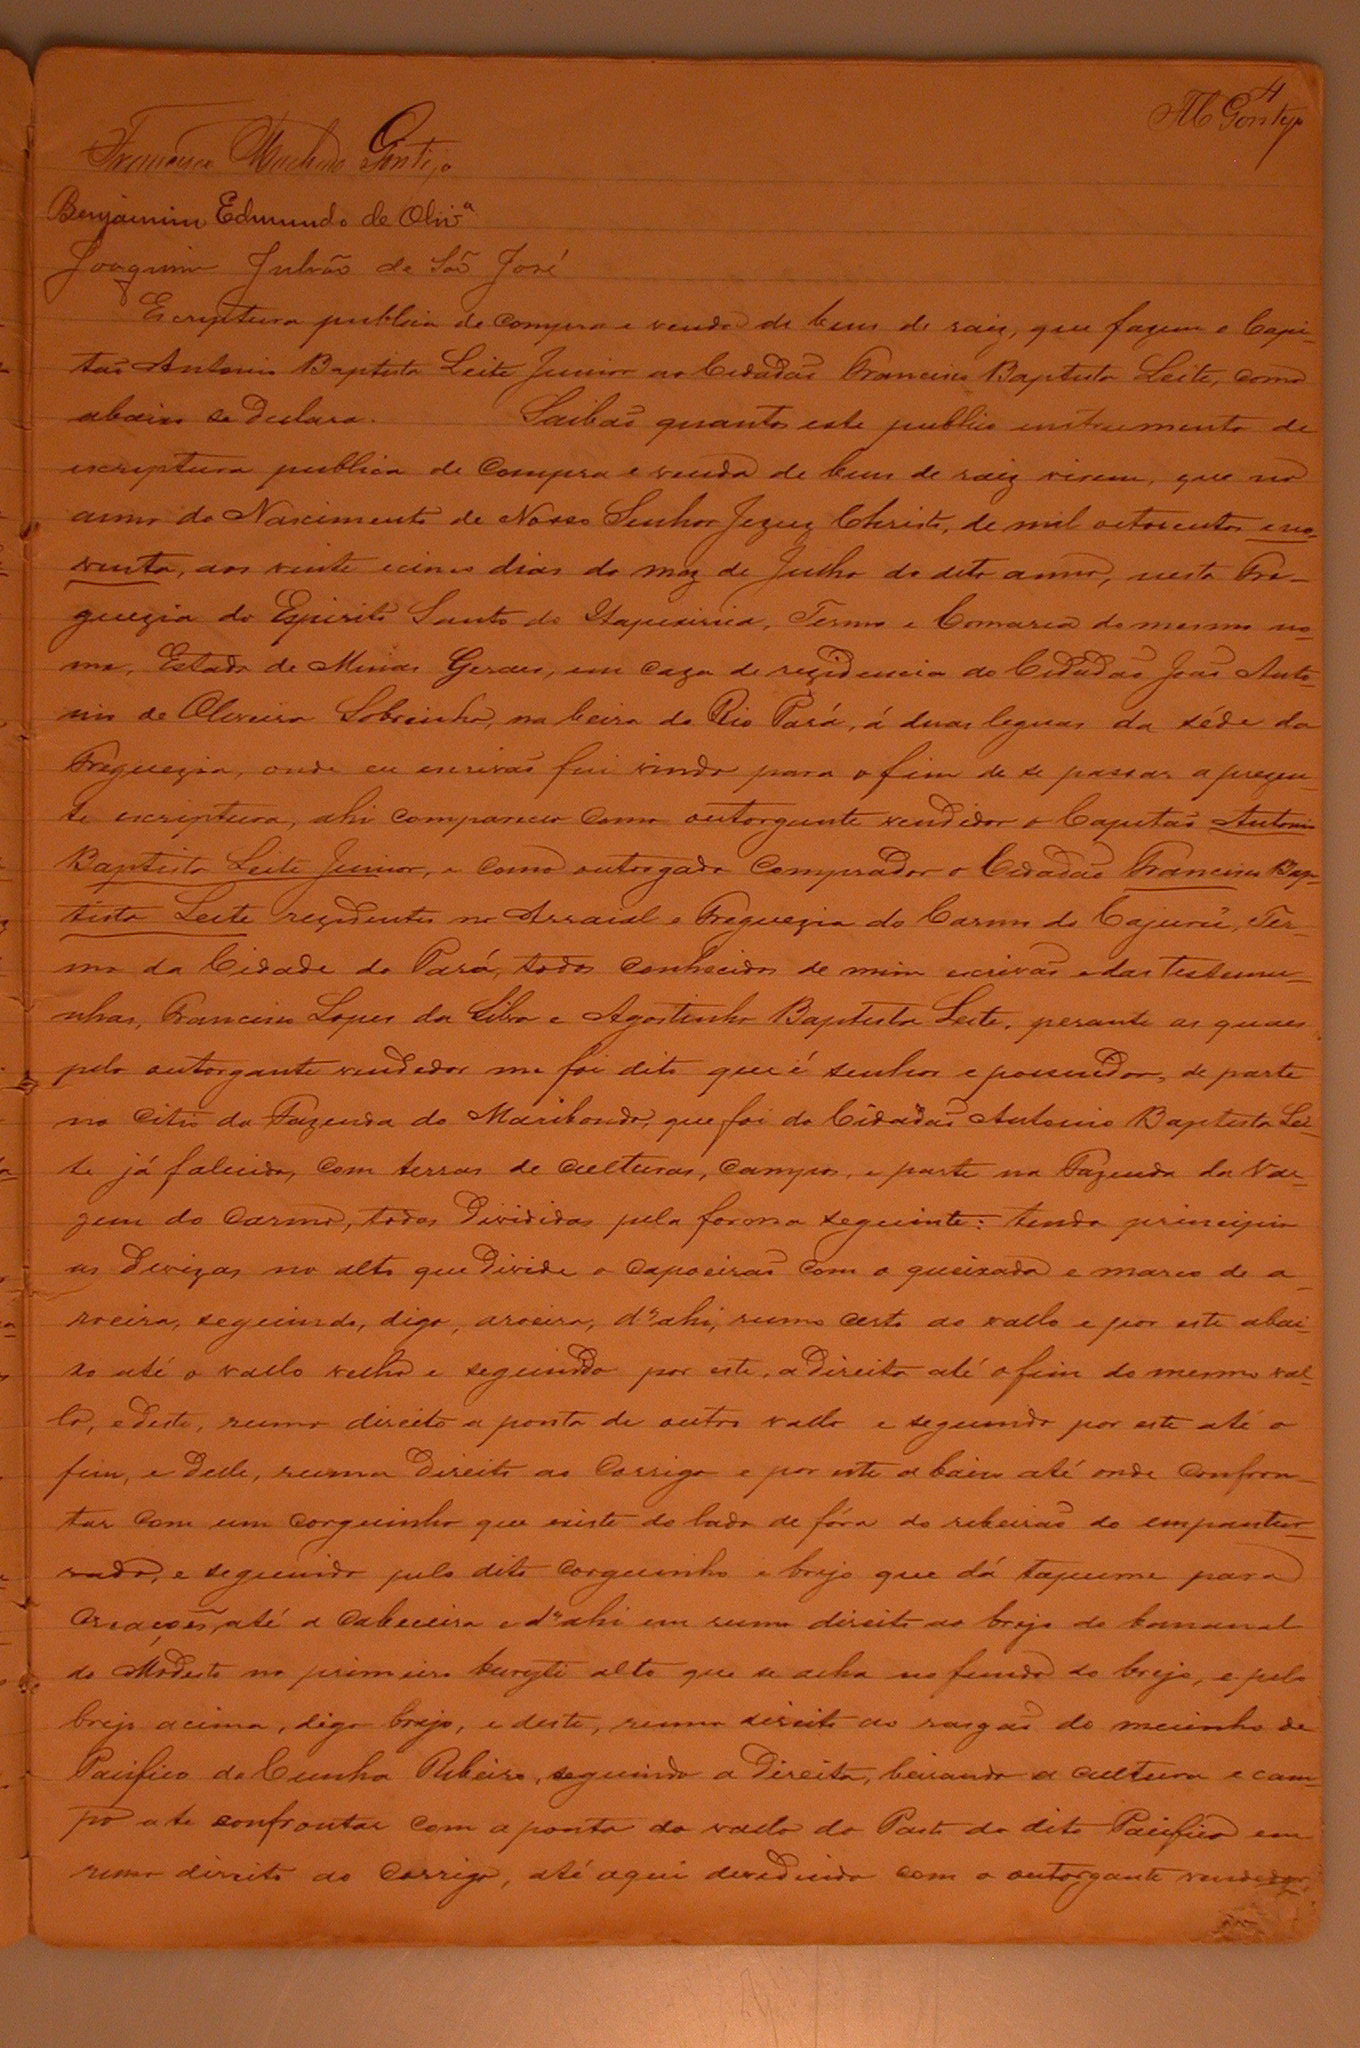 4
MC Gontijo
Francisco Machado Gontijo
Benjamim Edmundo de Oliv.ª
Joaquim Julião de São José
Escriptura publica de compra e venda de bens de raiz, que fazem o Capi-
tão Antonio Baptista Leite Junior ao Cidadão Francisco Baptista Leite, como
abaixo se declara. Saibão quantos este publico instrumento de
escriptura publica de compra e venda de bens de raiz virem, que no
anno do Nascimento de Nosso Senhor Jezuz Christo, de mil oitocentos eno-
venta, aos vinte ecinco dias do mez de Julho do dito anno, nesta Fre-
guezia do Espirito Santo do Itapecirica, Termo e Comarca do mesmo no-
me, Estado de Minas Geraes, em caza de rezidencia do Cidadão João Anto-
nio de Oliveira Sobrinho, na beira do Rio Pará, á duas leguas da séde da
Freguezia, onde eu escrivão fui vindo para o fim de se passar a prezen-
te escriptura, ahi compareceo como outorgante vendedor o Capitão Antonio
Baptista Leite Junior, e como outorgado comprador o Cidadão Francisco Bap-
tista Leite rezidentes no Arraial e Freguezia do Carmo do Cajurú, Ter-
mo da Cidade do Pará, todos conhecidos de mim escrivão e das testemu-
nhas, Francisco Lopes da Silva e Agostinho Baptista Leite, perante as quaes
pelo outorgante vendedor me foi dito que é senhor e possuidor, de parte
no Citio da Fazenda do Maribondo, que foi do Cidadão Antonio Baptista Lei-
te já falecido, com terras de culturas, campos, e parte na Fazenda da Var-
gem do Carmo, todos divididos pela forma seguinte: tendo principio
as divizas no alto que divide o capoeirão com o queixada e marco de a-
roeira, seguindo, digo, aroeira, d'ahi, rumo certo ao vallo e por este abai-
xo até o vallo velho e seguindo por este, a direita até o fim do mesmo val-
lo, e deste, rumo direito a ponta de outro vallo e seguindo por este até o
fim, e delle, rumo direito ao Corrigo e por este a baixo até onde confron-
tar com um corguinho que existe do lado de fóra do ribeirão do empantur-
rado, e seguindo pelo dito corguinho e brejo que dá tapume para
creações, até a cabeceira e d'ahi em rumo direito ao brejo do bananal
do Modesto no primeiro buryti alto que se acha no fundo do brejo, e pelo
brejo acima, digo brejo, e deste, rumo direito ao rasgão do moinho de
Pacifico da Cunha Ribeiro, seguindo a direita, beirando a cultura e cam-
po ate confrontar com a ponta do vallo do Pasto do dito Pacifico em
rumo direito ao corrigo, até aqui dividindo com o outorgante vendedor